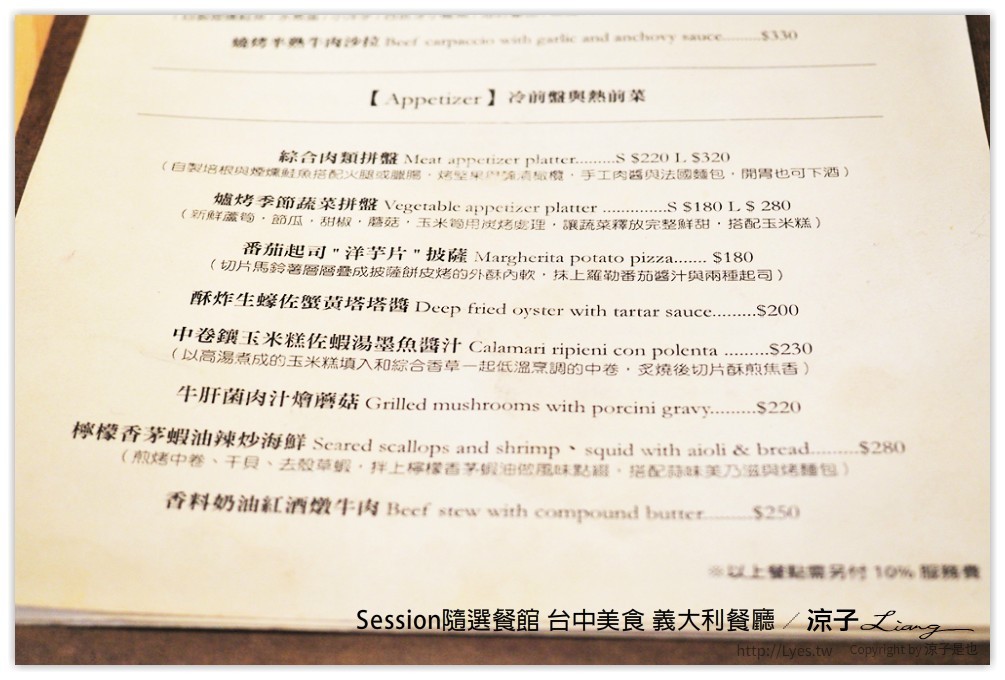 爐烤半熟牛肉沙拉 Beef carpaccio with garlic and anchovy sauce.........$330
【Appetizer】冷前盤與熱前菜
綜合肉類拼盤 Meat appetizer platter.........S $220 L $320
(自製培根與煙燻鮭魚搭配火腿或臘腸,烤堅果與醃漬橄欖,手工肉醬與法國麵包,開胃也可下酒)
爐烤季節蔬菜拼盤 Vegetable appetizer platter ..............S $180 L $ 280
(新鮮蘆筍,節瓜,甜椒,蘑菇,玉米筍用炭烤處理,讓蔬菜釋放完整鮮甜,搭配玉米糕)
番茄起司 " 洋芋片 " 披薩 Margherita potato pizza....... $180
(切片馬鈴薯層層疊成披薩餅皮烤的外酥內軟,抹上羅勒番茄醬汁與兩種起司)
酥炸生蠔佐蟹黃塔塔醬 Deep fried oyster with tartar sauce.........$200
中卷鑲玉米糕佐蝦湯墨魚醬汁 Calamari ripieni con polenta .........$230
(以高湯煮成的玉米糕填入和綜合香草一起低溫烹調的中卷,炙燒後切片酥煎焦香)
牛肝菌肉汁燴蘑菇 Grilled mushrooms with porcini gravy.........$220
檸檬香茅蝦油辣炒海鮮 Seared scallops and shrimp、squid with aioli & bread.........$280
(煎烤中卷、干貝、去殼草蝦,拌上檸檬香茅蝦油做風味點綴,搭配蒜味美乃滋與烤麵包)
香料奶油紅酒燉牛肉 Beef stew with compound butter.........$250
※以上餐點需另付 10% 服務費
Session隨選餐館 台中美食 義大利餐廳 / 涼子 Liang
http://Lyes.tw Copyright by 涼子是也